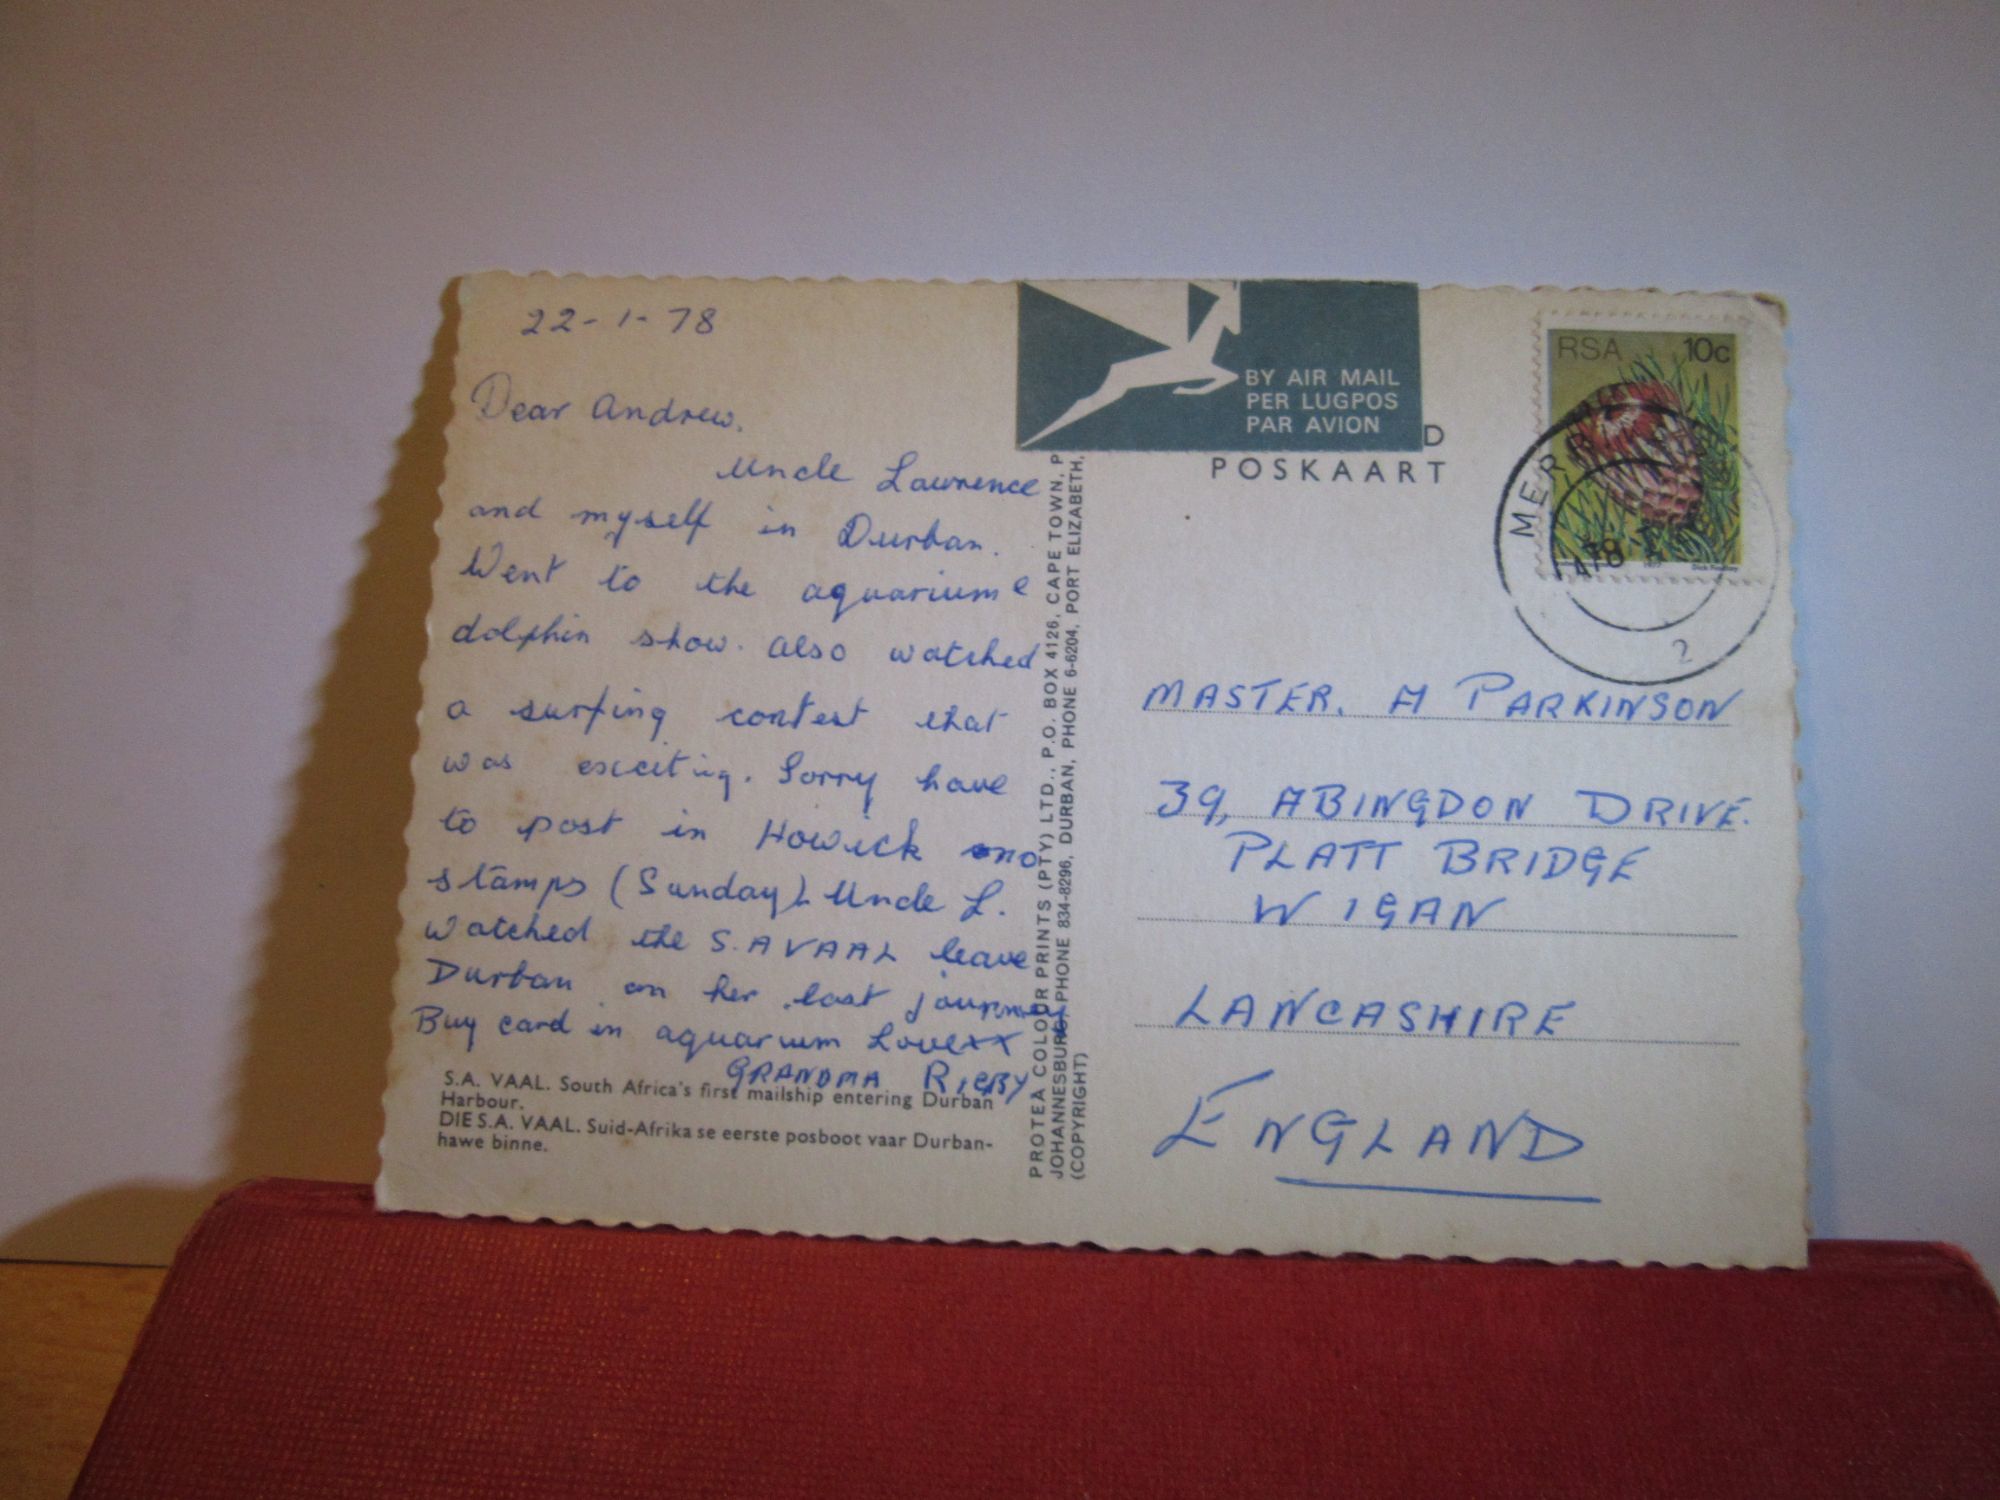 22-1-78
Dear Andrew.
Uncle Lawrence
and myself in Durban.
Went to the aquarium e
dolphin show. also watched
a surfing contest that
was exciting. Sorry have
to post in Howick no
stamps (Sunday). Uncle L.
watched the S.A VAAL leave
Durban on her last journey
Buy card in aquarium Love xx
GRANDMA RIGBY
S.A. VAAL. South Africa's first mailship entering Durban
Harbour.
DIE S.A. VAAL. Suid-Afrika se eerste posboot vaar Durban-
hawe binne.
PROTEA COLOUR PRINTS (PTY) LTD., P.O. BOX 4126, CAPE TOWN, P
JOHANNESBURG, PHONE 834-8296, DURBAN, PHONE 6-6204, PORT ELIZABETH,
(COPYRIGHT)
BY AIR MAIL
PER LUGPOS
PAR AVION
D
POSKAART
RSA 10c
2
MASTER. A PARKINSON
39, ABINGDON DRIVE.
PLATT BRIDGE
WIGAN
LANCASHIRE
ENGLAND